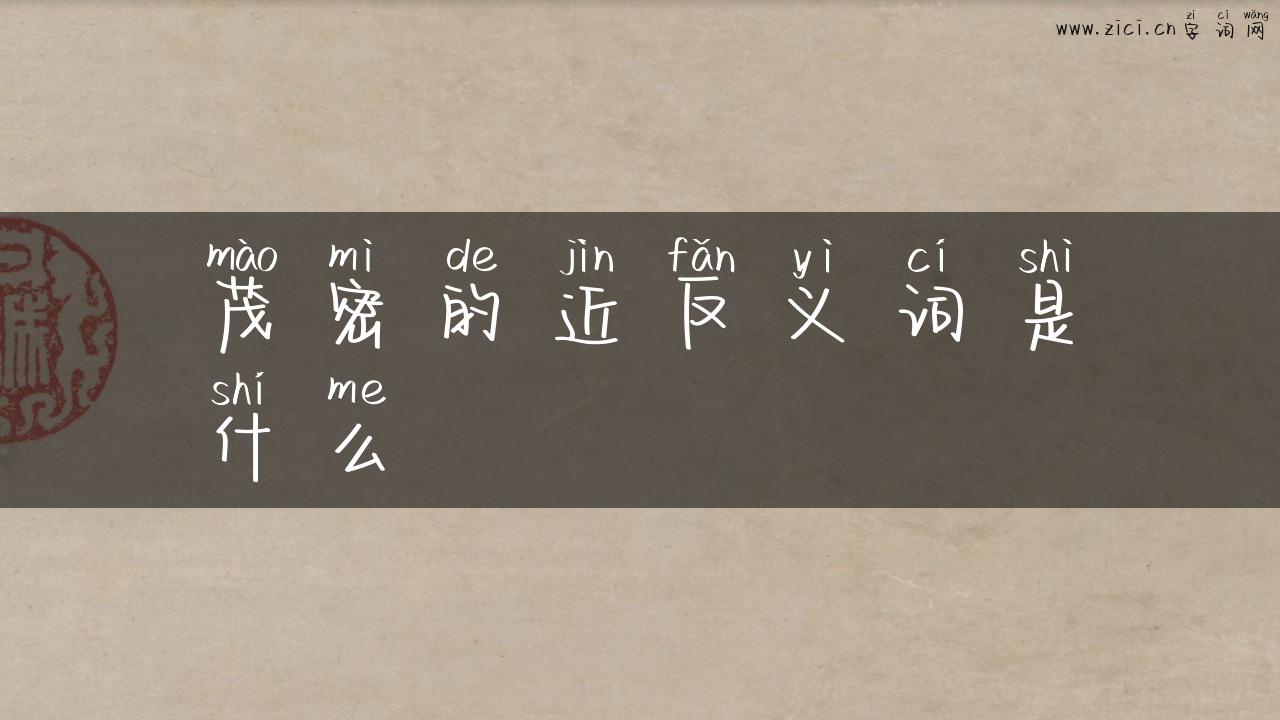 zì cí wǎng
www.zici.cn 字词网
mào mì de jìn fǎn yì cí shì
茂密的近反义词是
shí me
什么